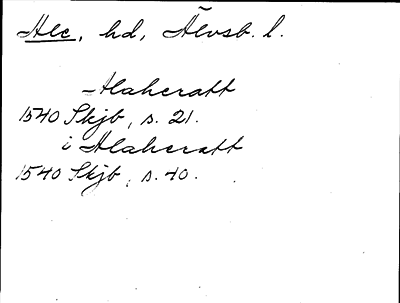 Ale, hd, Älvsb. l.
Alahcratt
1540 Skjb, s. 21.
i Alahcratt
1540 Skjb, s. 40.